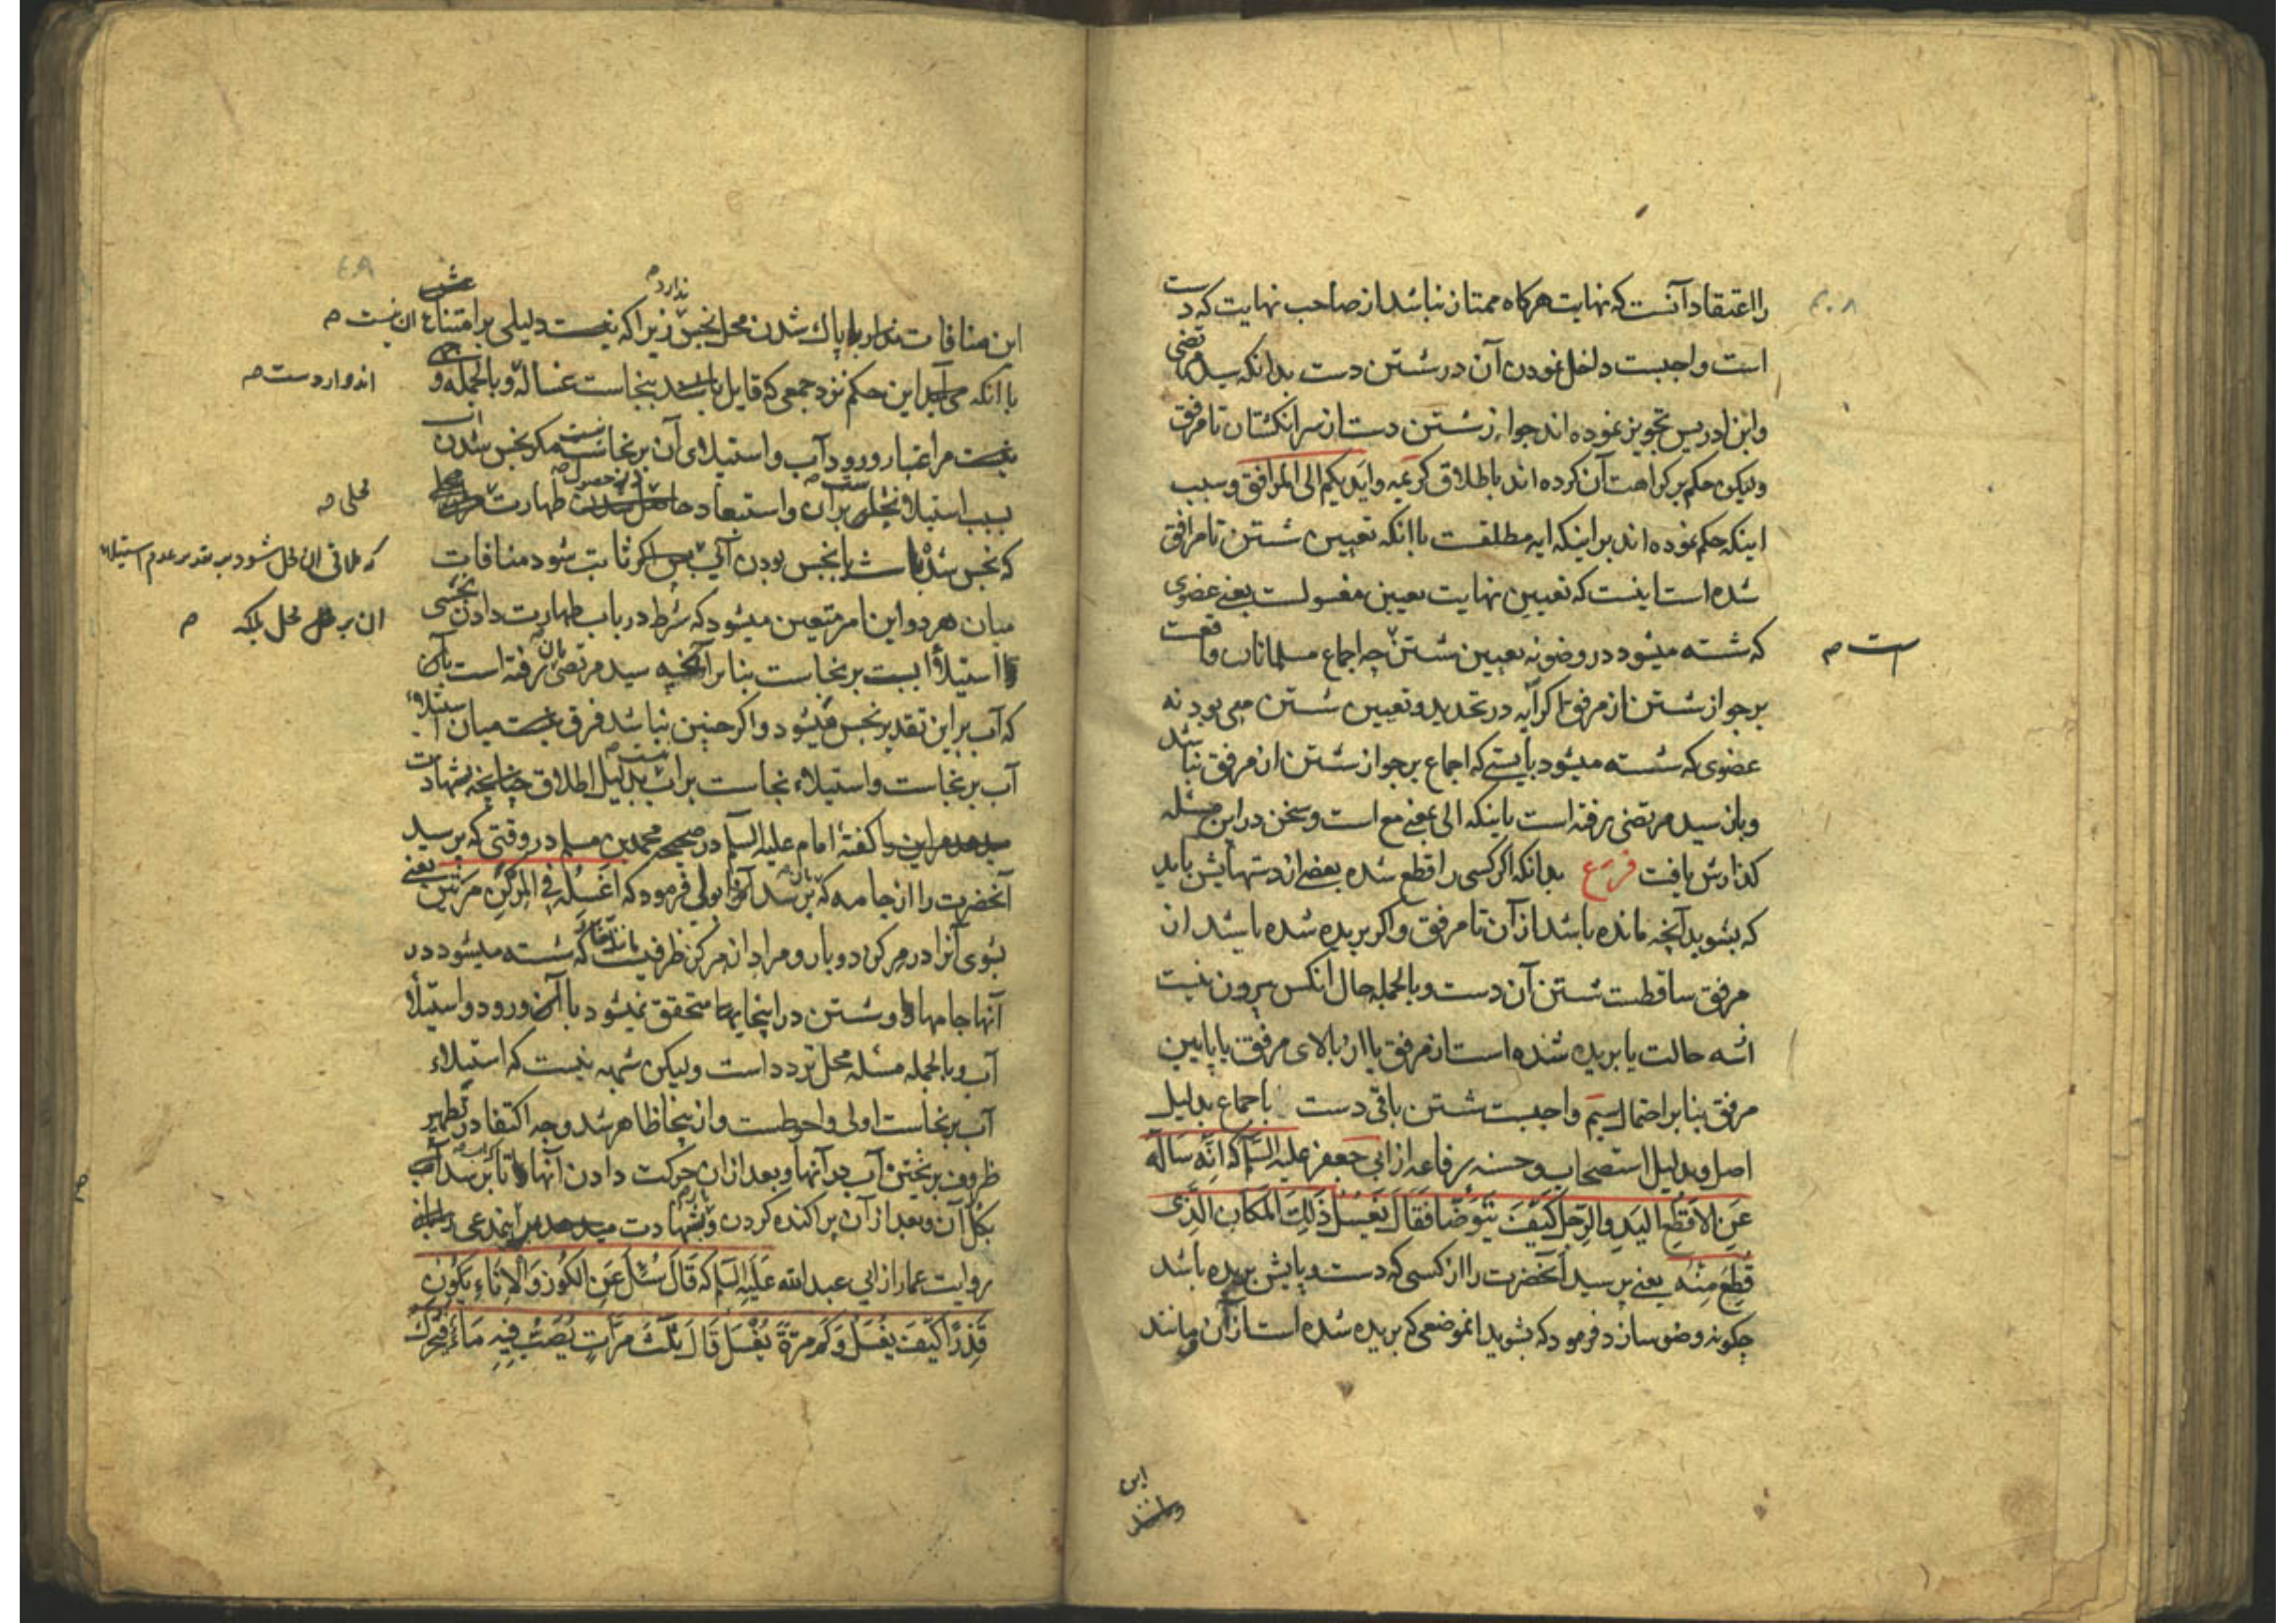 را اعتقاد آنست که نهایت هرکاه ممتاز نباشد از صاحب نهایت که دست
است واجبست داخل نمودن آن در شستن دست بدانکه سید مرتضی
وابن ادریس تجویز نموده اند جواز شستن دست از سر انکشتان تا مرفق
ولیکن حکم بر کراهت آن کرده اند باطلاق کریمه وایدیکم الی المرافق وسبب
اینکه حکم نموده اند بر اینکه ایه مطلقست باانکه تعیین شستن تا مرافق
شده است اینست که تعیین نهایت تعیین مغسولست یعنی عضوی
که شسته میشود در وضو نه تعیین شستن چه اجماع مسلمانان واقعست
است صح
بر جواز شستن از مرفق اکر آیه در تحدید وتعیین شستن می بود نه
عضوی که شسته میشود بایستی که اجماع بر جواز شستن از مرفق نباشد
وبان سید مرتضی رفته است باینکه الی بمعنی مع است وسخن در این مسئله
کذارش یافت فرع بدانکه اکر کسی را قطع شده بعضی از دستهایش باید
که بشوید آنچه مانده باشد از آن تا مرفق واکر بریده شده باشد از
مرفق ساقطست شستن آن دست وبالجمله حال انکس بیرون نیست
از سه حالت یا بریده شده است از مرفق یا از بالای مرفق یا پایین
مرفق بنا بر احتمال سیم واجبست شستن باقی دست باجماع بدلیل
اصل وبدلیل استصحاب وحسنه رفاعه از ابی جعفر علیه السلم که انّه ساله
عَنِ الاَقطَعِ الیَدِ والرِجلِ کَیفَ یَتَوَضّا فَقَالَ یَغسِلُ ذَلِکَ المَکانَ الَّذی
قُطِعَ مِنهُ یعنی پرسید آنحضرت را از کسی که دست وپایش بریده باشد
چکونه وضو سازد فرمود که بشوید انموضعی که بریده شده است از آن ومانند
این
این منافات با پاک شدن محل نجس ندارد زیرا که نیست دلیلی بر امتناع ان نیست صح
باانکه این حکم نزد جمعی که قایل بنجاست غساله وبالجمله و
اند وارد ست صح
مر اعتبار ورود آب واستیلای آن بر نجاست مکر نجس شدن
بسبب استیلا بران واستبعاد حصول طهارت
محلی صح
که نجس شد یا نجس بودن آب پس اکر ثابت شود منافات
که ملاقی ان محل شود بر تقدیر عدم استیلاء
میان هر دو این امر متعین میشود که شرط در باب طهارت دادن نجسی
ان بر محل بلکه صح
استیلاء ابست بر نجاست بنا بر آنچه سید مرتضی بان رفته است
که آب بر این تقدیر نجس میشود واکر چنین نباشد فرق نیست میان استیلاء
آب بر نجاست واستیلاء نجاست بر آب بدلیل اطلاق چنانچه شهادت
کفتهٔ امام علیه السلم در صحیح محمد بن مسلم در وقتی که پرسید
آنحضرت را از جامه که برسد بولی فرمود که اغسِلهُ فی المِرکَنِ مَرَّتَینِ یعنی
بشوی آنرا در مرکن دو بار ومراد از مرکن ظرفیست که شسته میشود در
آنها جامها وشستن در اینجاها متحقق نمیشود با ورود واستیلاء
آب وبالجمله مسئله محل تردد است ولیکن شبهه نیست که استیلاء
آب بر نجاست اولی واحوطست واز اینجا ظاهر شد وجه اکتفا در تطهیر
ظروف بریختن آب در آنها وبعد از ان حرکت دادن آنها تا برسد آب
بکل آن وبعد از آن پراکنده کردن وشهادت
روایت عمار از ابی عبد الله عَلَیهِ السلم که قَالَ سُئِلَ عَنِ الکُوزِ وَالاِناءِ یَکُونُ
قَذِراً کَیفَ یُغسَلُ وَکَم مَرَّةً یُغسَلُ قَالَ ثَلٰثَ مَرّاتٍ یُصَبُّ فِیهِ مَاءٌ فَیُحَرَّکُ